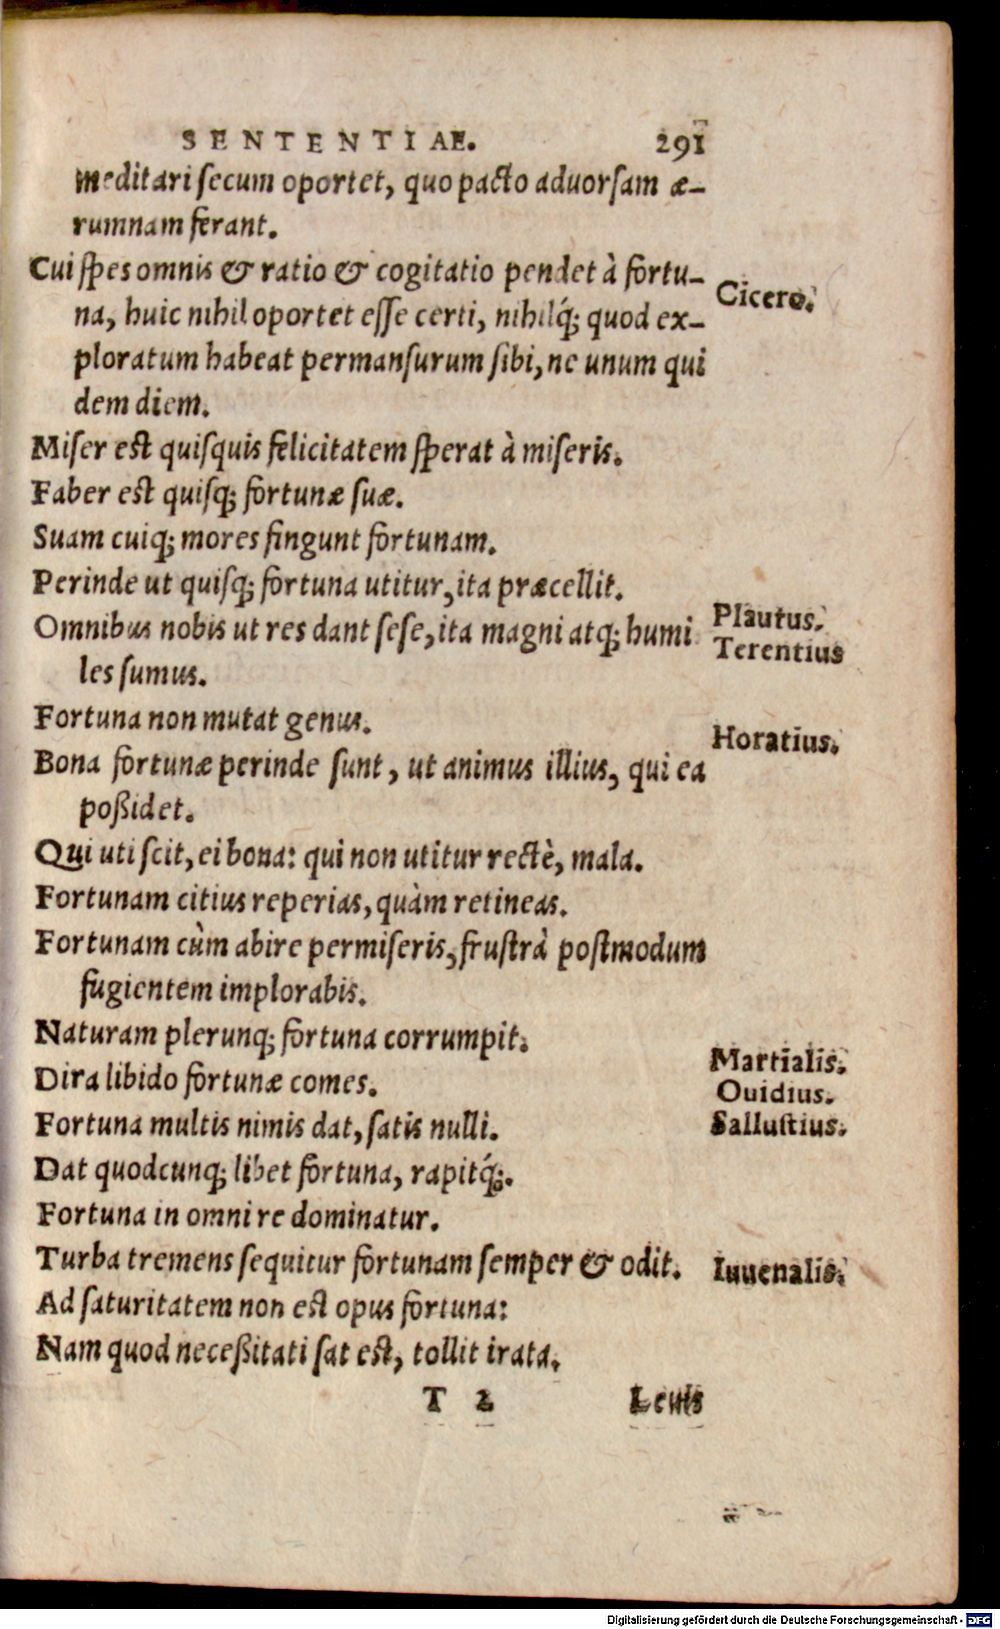 SENTENTIAE. 291
meditari secum oportet, quo pacto aduorsam æ-
rumnam ferant.
Cui spes omnis & ratio & cogitatio pendet à fortu-
Cicero.
na, huic nihil oportet esse certi, nihilq́; quod ex-
ploratum habeat permansurum sibi, ne unum qui
dem diem.
Miser est quisquis felicitatem sperat à miseris.
Faber est quisq; fortunæ suæ.
Suam cuiq; mores fingunt fortunam.
Perinde ut quisq; fortuna utitur, ita præcellit.
Plautus.
Omnibus nobis ut res dant sese, ita magni atq; humi
Terentius
les sumus.
Fortuna non mutat genus.
Horatius.
Bona fortunæ perinde sunt, ut animus illius, qui ea
poßidet.
Qui uti scit, ei bona: qui non utitur rectè, mala.
Fortunam citius reperias, quàm retineas.
Fortunam cùm abire permiseris, frustrà postmodum
fugientem implorabis.
Naturam plerunq; fortuna corrumpit.
Martialis.
Dira libido fortunæ comes.
Ouidius.
Fortuna multis nimis dat, satis nulli.
Sallustius.
Dat quodcunq; libet fortuna, rapitq́;.
Fortuna in omni re dominatur.
Turba tremens sequitur fortunam semper & odit.
Iuuenalis.
Ad saturitatem non est opus fortuna:
Nam quod neceßitati sat est, tollit irata.
T 2 Leuis
Digitalisierung gefördert durch die Deutsche Forschungsgemeinschaft - DFG